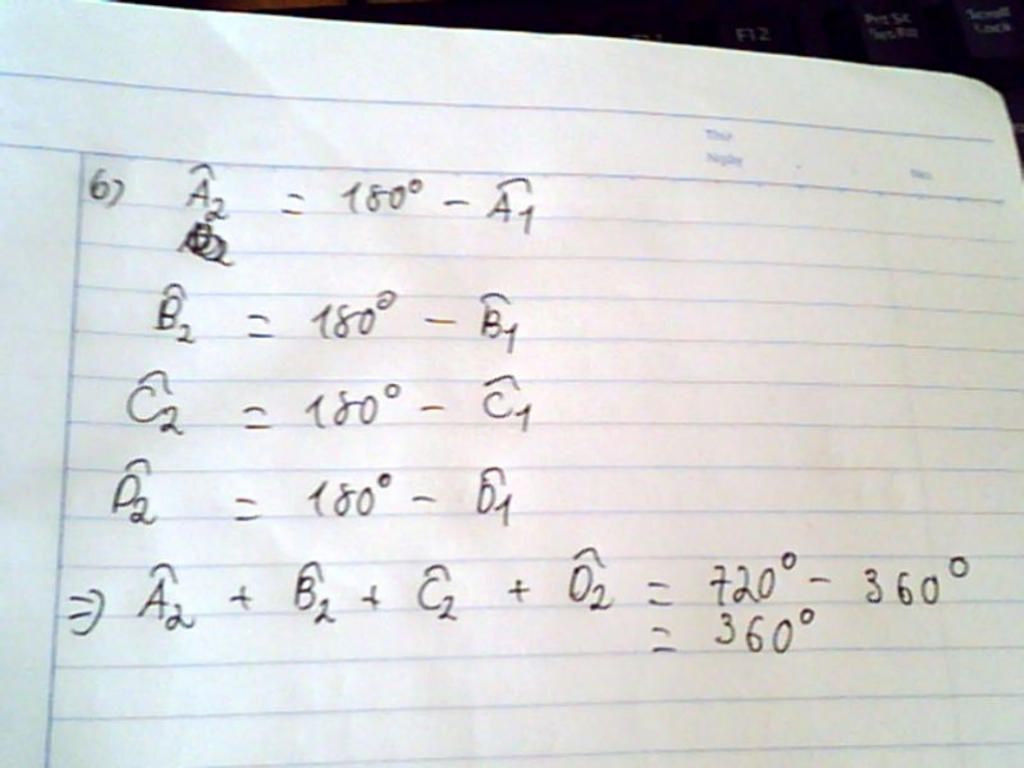 F12
Prt Sc
Scroll
Lock
Thứ
Ngày
6) Â₂ = 180° - Â₁
B̂₂ = 180° - B̂₁
Ĉ₂ = 180° - Ĉ₁
D̂₂ = 180° - D̂₁
=> Â₂ + B̂₂ + Ĉ₂ + D̂₂ = 720° - 360°
= 360°